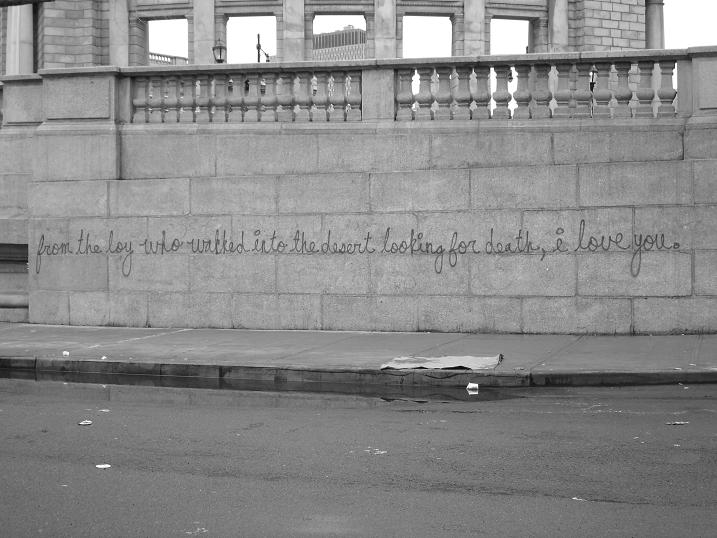 from the boy who walked into the desert looking for death, i love you.